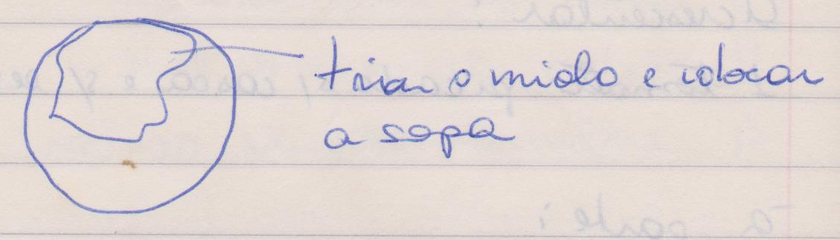 tirar o miolo e colocar
a sopa